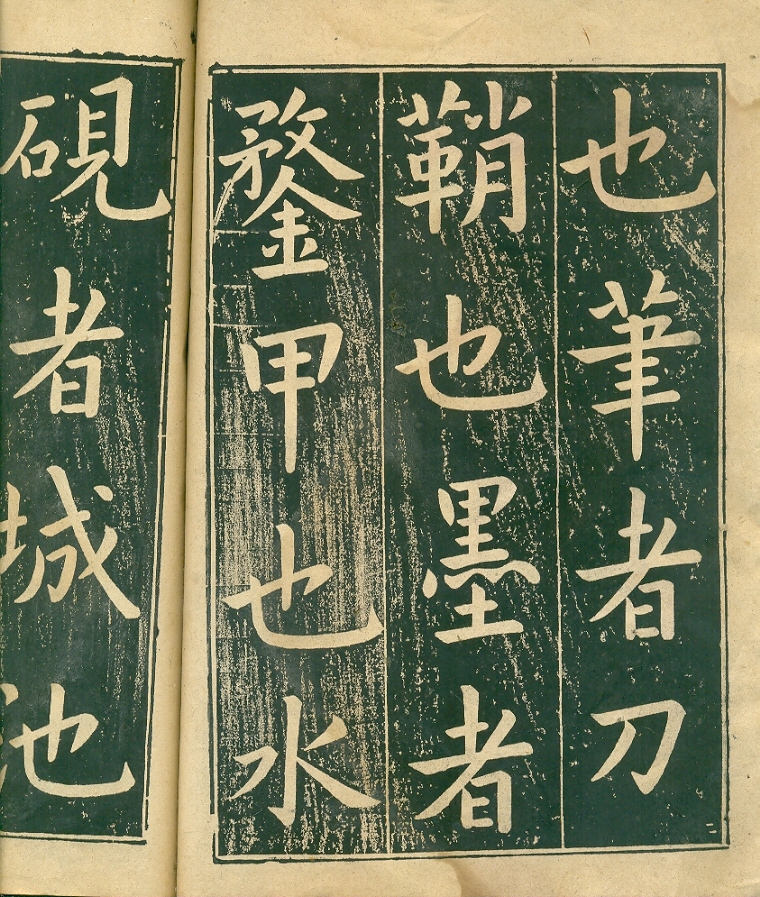 也筆者刀
鞘也墨者
鍪甲也水
硯者城池